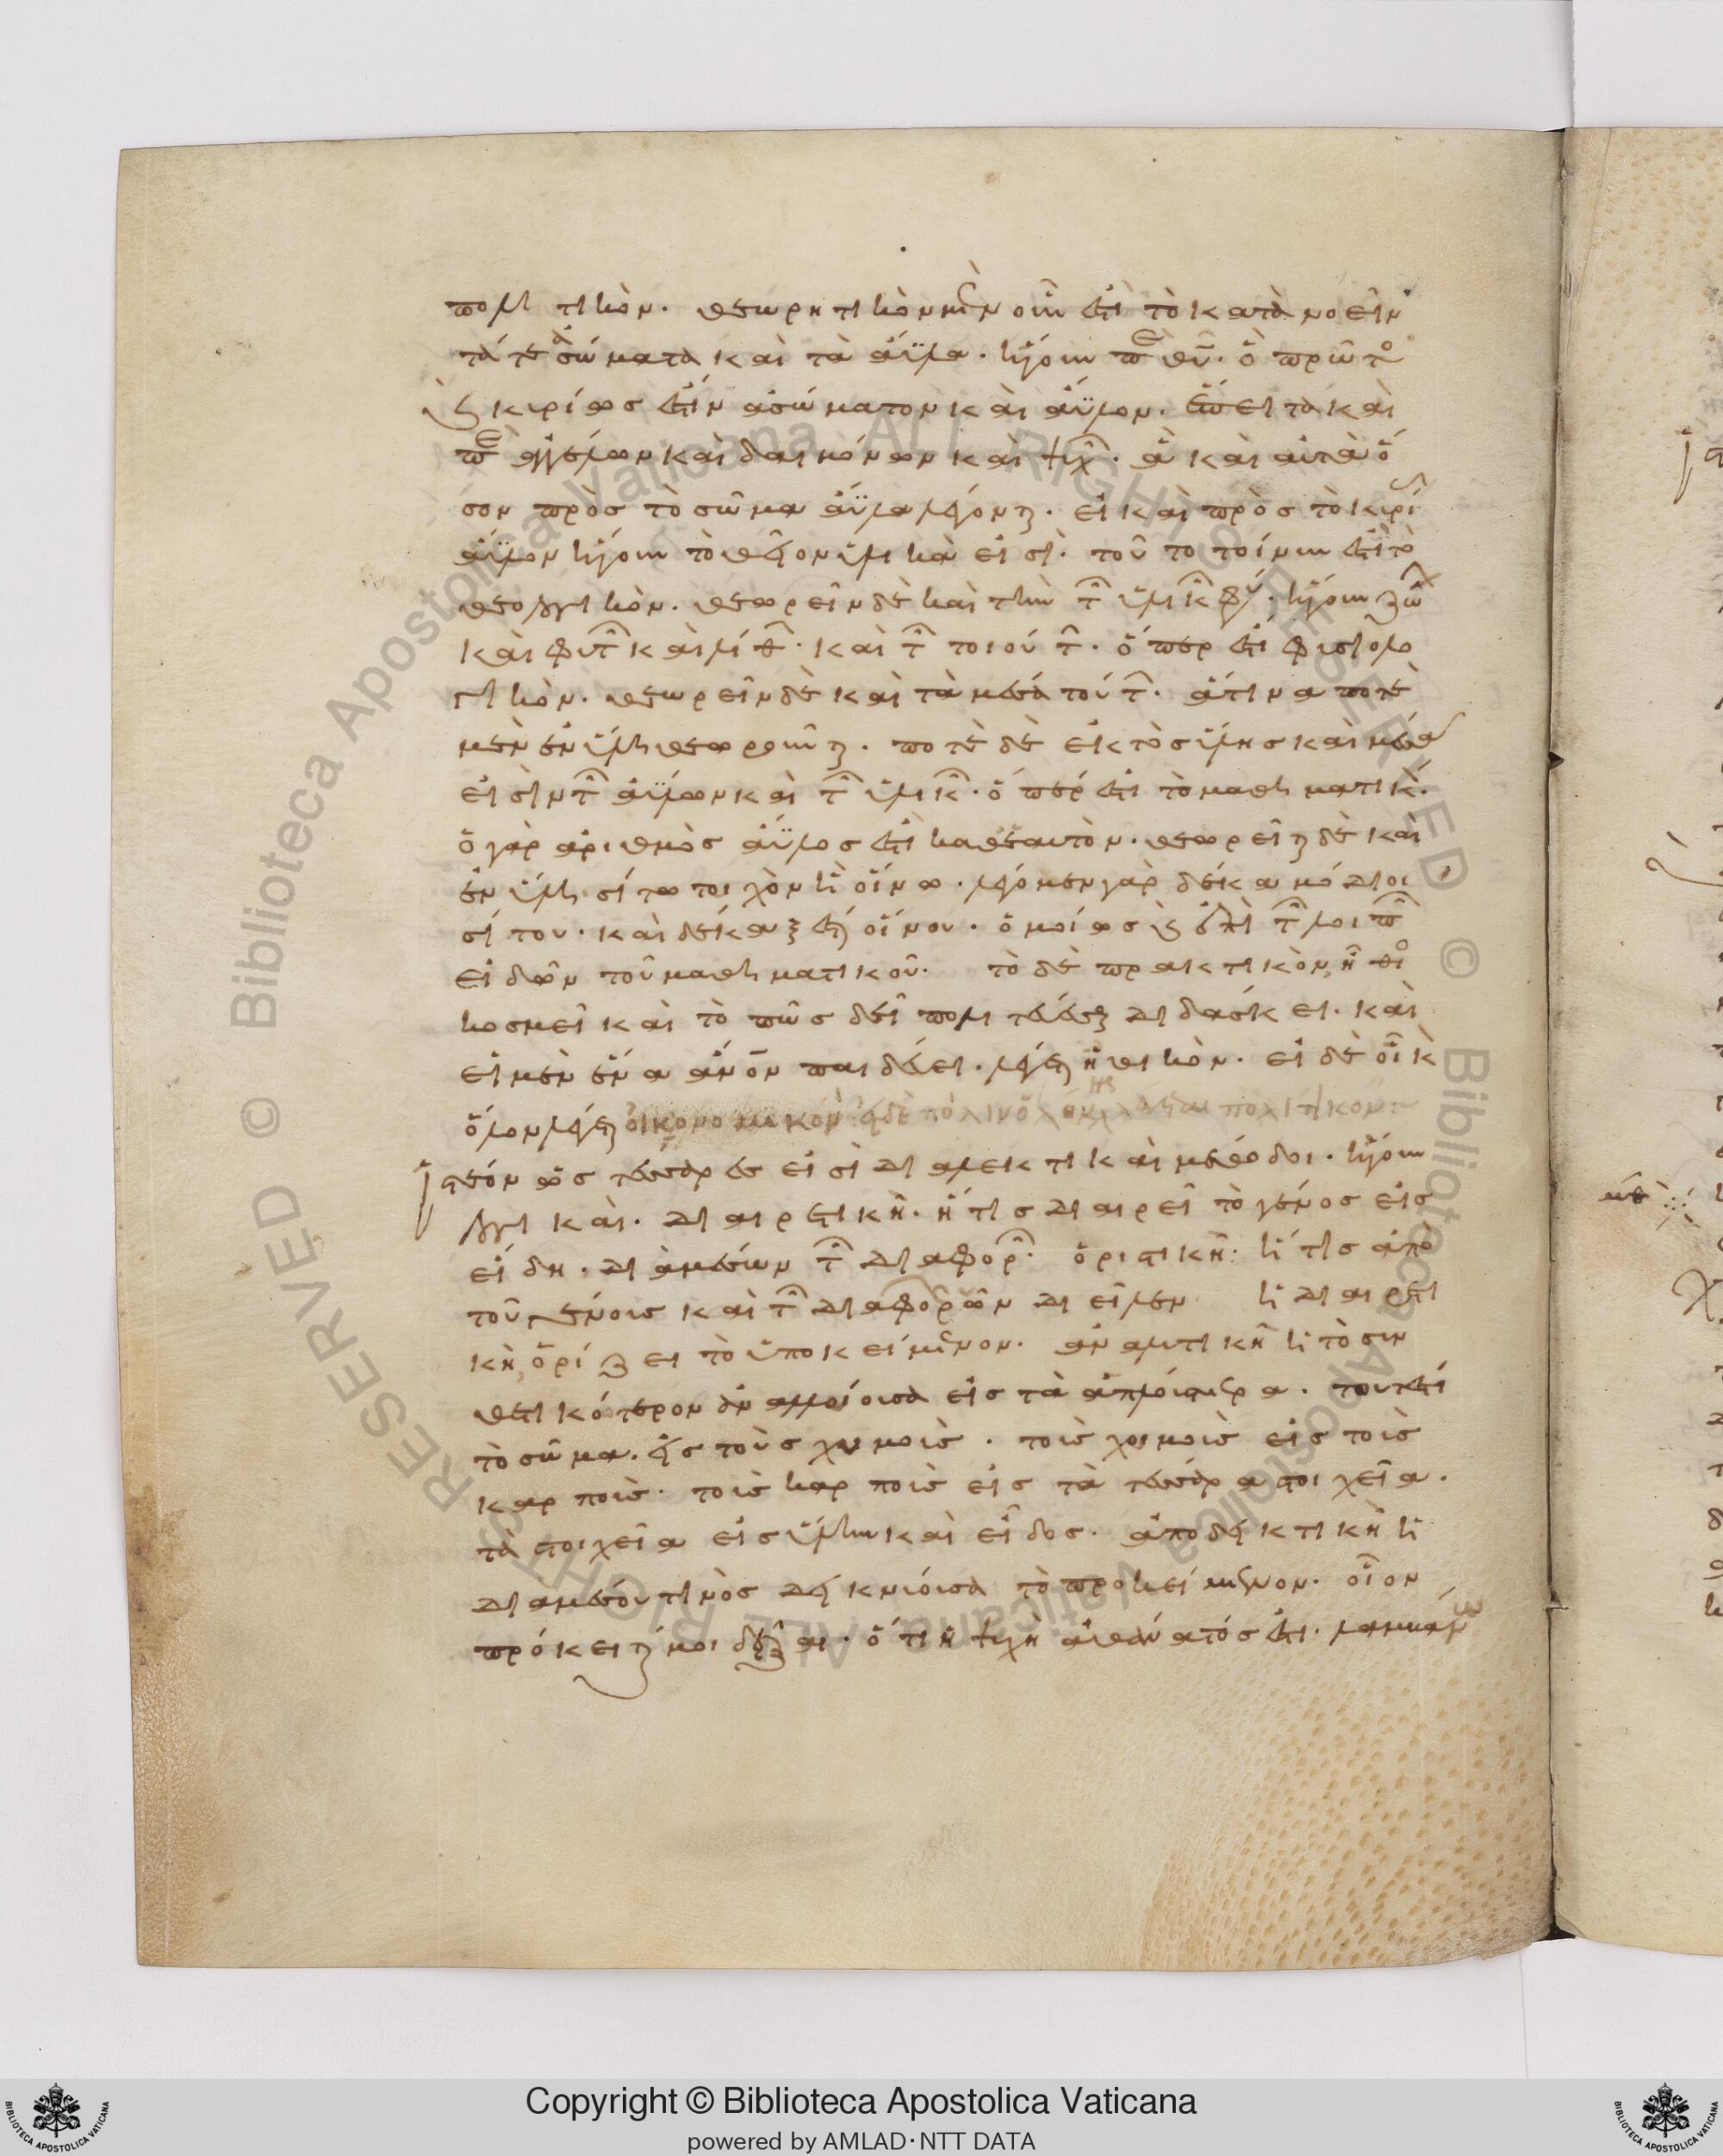 πολιτικόν. θεωρητικὸν μὲν οὖν ἐστὶ τὸ κατανοεῖν
τά τε ἀσώματα καὶ τὰ ἄϋλα. ἤγουν περὶ θεοῦ. ὃ πρώτως
καὶ κυρίως ἐστὶν ἀσώματον καὶ ἄϋλον. ἔπειτα καὶ
περὶ ἀγγέλων καὶ δαιμόνων καὶ ψυχῶν. ἃ καὶ αὐτὰ ὅ
σον πρὸς τὸ σῶμα ἄϋλα λέγονται. εἰ καὶ πρὸς τὸ κυρίως
ἄϋλον ἤγουν τὸ θεῖον ὑλικὰ εἰσί. τοῦτο τοίνυν ἐστὶ τὸ
θεολογικόν. θεωρεῖν δὲ καὶ τὴν τῶν ὑλικῶν φύσιν. ἤγουν ζώων
καὶ φυτῶν καὶ λίθων. καὶ τῶν τοιούτων. ὅπερ ἐστὶ φυσιολο
γικόν. θεωρεῖν δὲ καὶ τὰ μέσα τούτων. ἅτινα ποτὲ
μὲν ἐν ὕλῃ θεωροῦνται. ποτὲ δὲ ἐκτὸς ὕλης καὶ μέσα
εἰσὶν τῶν ἀΰλων καὶ τῶν ὑλικῶν. ὅπερ ἐστὶ τὸ μαθηματικόν.
ὁ γὰρ ἀριθμὸς ἄϋλος ἐστὶ καθ' ἑαυτόν. θεωρεῖται δὲ καὶ
ἐν ὕλῃ σίτω τυχὸν ἢ οἴνω. λέγομεν γὰρ δέκα μόδιοι
σίτου. καὶ δέκα ξέσται οἴνου. ὁμοίως καὶ ἐπὶ τῶν λοιπῶν
εἰδῶν τοῦ μαθηματικοῦ. τὸ δὲ πρακτικὸν, ἤθος
κοσμεῖ καὶ τὸ πῶς δεῖ πολιτεύεσθαι διδάσκει. καὶ
εἰ μὲν ἕνα ἄνθρωπον παιδεύει. λέγεται ἠθικόν. εἰ δὲ οἶκον
ὅλον λέγεται οἰκονομικόν εἰ δὲ πόλιν ὅλην καλεῖται πολιτικόν:
ἰστέον ὡς τέσσαρες εἰσὶ διαλεκτικαὶ μέθοδοι. ἤγουν
λογικαί. διαιρετικὴ. ἥτις διαιρεῖ τὸ γένος εἰς
εἴδη. διὰ μέσων τῶν διαφορῶν. ὁριστικὴ: ἥτις ἀπὸ
τοῦ γένους καὶ τῶν διαφορῶν ὧν διεῖλεν ἡ διαιρετι
κὴ, ὁρίζει τὸ ὑποκείμενον. ἀναλυτικὴ ἡ τὸ συν
θετικότερον ἀναλύουσα εἰς τὰ ἁπλούστερα. τουτέστι
τὸ σῶμα. εἰς τοὺς χυμούς. τοὺς χυμοὺς εἰς τοὺς
καρπούς. τοὺς καρποὺς εἰς τὰ τέσσαρα στοιχεῖα.
τὰ στοιχεῖα εἰς ὕλην καὶ εἶδος. ἀποδεικτικὴ ἡ
διὰ μέσου τινὸς δεικνύουσα τὸ προκείμενον. οἷον
πρόκειταί μοι δεῖξαι. ὅτι ἡ ψυχὴ ἀθάνατός ἐστι. λαμβάνω